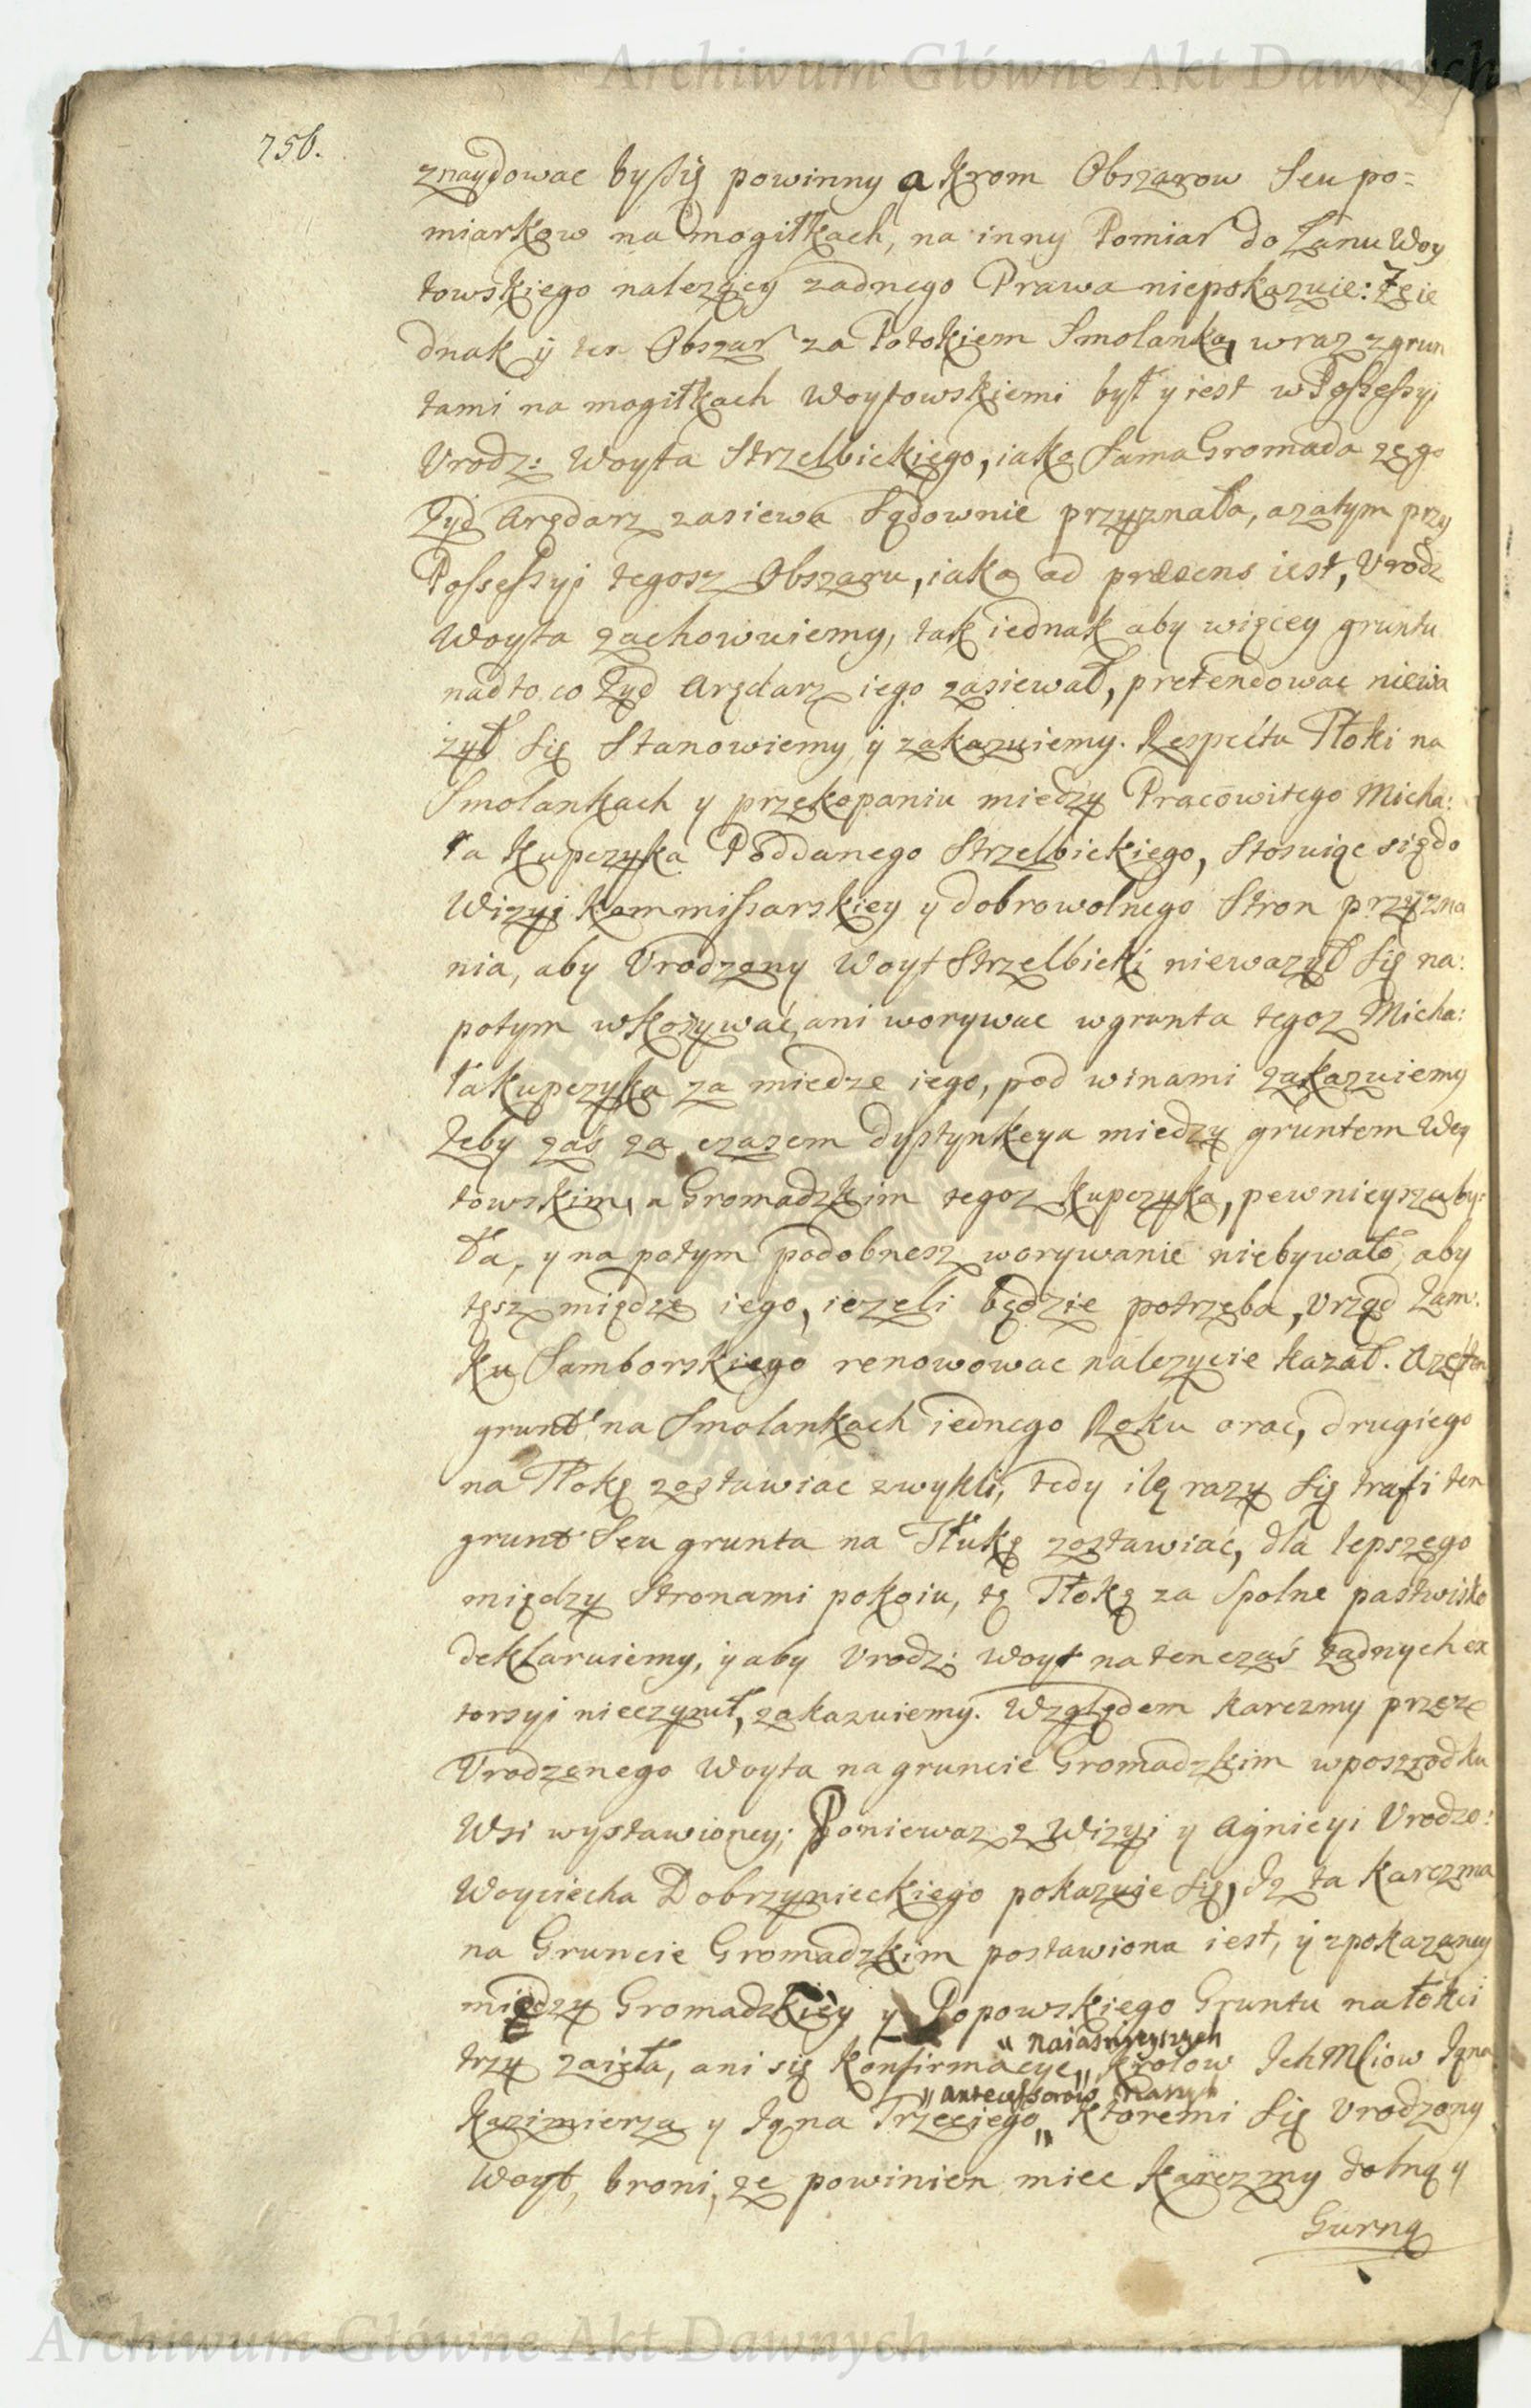 Archiwum Główne Akt Dawnych
756.
znaydowac by się powinny a krom Obszarow Seu po=
miarkow na mogiłkach, na inny Pomiar do Łanu Woy
towskiego nalezący zadnego Prawa niepokazuie: Ze ie
dnak y ten Obszar za Potokiem Smolanką, wraz z grun
tami na mogiłkach Woytowskiemi był y iest w Possessyi
Urodz: Woyta Strzelbickiego, iako Sama Gromada ze go
Zyd Arędarz zasiewa Sądownie przyznała, a zatym przy
Possessyi tegosz Obszaru, iaka ad praesens iest, Urodz
Woyta zachowuiemy, tak iednak aby więcey gruntu
nad to co Zyd Arędarz iego zasiewał, pretendowac niewa
zył Się Stanowiemy y zakazuiemy. Respectu Tłoki na
Smolankach y przekopaniu miedzy Pracowitego Micha:
ła Kupczyka Poddanego Strzelbickiego, Stosuiąc się do
Wizyi Kommissarskiey y dobrowolnego Stron przyzna
nia, aby Urodzony Woyt Strzelbicki niewazył Się na:
potym wkozywać, ani worywac w grunta tegoz Micha:
ła Kupczyka za miedze iego, pod winami zakazuiemy
Zeby zaś za czasem dystynkcya między gruntem Woy
towskim, a Gromadzkim tegoz Kupczyka, pewnieysza by:
ła, y na potym podobnesz worywanie niebywało, aby
tęsz miedze iego, iezeli będzie potrzeba, Urząd Zam:
ku Samborskiego renowowac nalezycie kazał. A ze ten
grunt na Smolankach iednego Roku orac, drugiego
na Tłokę zostawiac zwykli, tedy ile razy Się trafi ten
grunt Seu grunta na Tłukę zostawiać, dla lepszego
między Stronami pokoiu, tę Tłokę za Spolne pastwisko
deklaruiemy, y aby Urodz: Woyt na ten czas zadnych ex
torsyi nieczynił, zakazuiemy. Względem karczmy przeze
Urodzonego Woyta na gruncie Gromadzkim w poszrodku
Wsi wystawioney; Poniewaz z Wizyi y Agnicyi Urodzo:
Woyciecha Dobrzynieckiego pokazuie Się, Iz ta Karczma
na Gruncie Gromadzkim postawiona iest, y z pokazaney
między Gromadzkiey y Popowskiego Gruntu na łokci
" Naiasnieyszych
trzy zaięła, ani się Konfirmacye " Krolow Ich Mciow Jana
" antecessorow Naszych
Kazimierza y Jana Trzeciego " Ktoremi Się Urodzony
Woyt, broni, ze powinien miec Karczmy dolną y
Gurną
Archiwum Główne Akt Dawnych